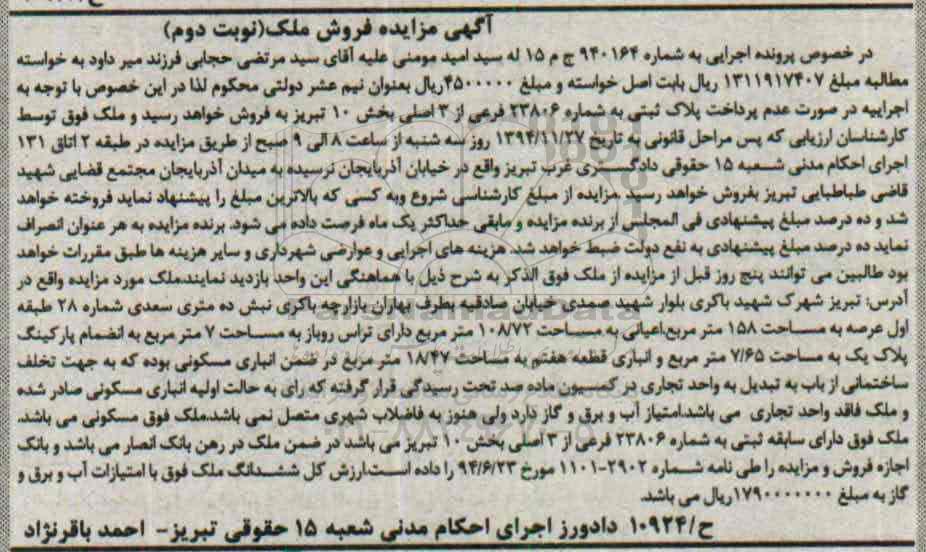 آگهی مزایده فروش ملک(نوبت دوم)
در خصوص پرونده اجرایی به شماره ۹۴۰۱۶۴ ج م ۱۵ له سید امید مومنی علیه آقای سید مرتضی حجابی فرزند میر داود به خواسته
مطالبه مبلغ ۱۳۱۱۹۱۷۴۰۷ ریال بابت اصل خواسته و مبلغ ۴۵۰۰۰۰۰ریال بعنوان نیم عشر دولتی محکوم لذا در این خصوص با توجه به
اجراییه در صورت عدم پرداخت پلاک ثبتی به شماره ۲۳۸۰۶ فرعی از ۳ اصلی بخش ۱۰ تبریز به فروش خواهد رسید و ملک فوق توسط
کارشناسان ارزیابی که پس مراحل قانونی به تاریخ ۱۳۹۴/۱۱/۲۷ روز سه شنبه از ساعت ۸ الی ۹ صبح از طریق مزایده در طبقه ۲ اتاق ۱۳۱
اجرای احکام مدنی شعبه ۱۵ حقوقی دادگستری غرب تبریز واقع در خیابان آذربایجان نرسیده به میدان آذربایجان مجتمع قضایی شهید
قاضی طباطبایی تبریز بفروش خواهد رسید مزایده از مبلغ کارشناسی شروع وبه کسی که بالاترین مبلغ را پیشنهاد نماید فروخته خواهد
شد و ده درصد مبلغ پیشنهادی فی المجلس از برنده مزایده و مابقی حداکثر یک ماه فرصت داده می شود. برنده مزایده به هر عنوان انصراف
نماید ده درصد مبلغ پیشنهادی به نفع دولت ضبط خواهد شد. هزینه های اجرایی و عوارضی شهرداری و سایر هزینه ها طبق مقررات خواهد
بود طالبین می توانند پنج روز قبل از مزایده از ملک فوق الذکر به شرح ذیل با هماهنگی این واحد بازدید نمایند.ملک مورد مزایده واقع در
آدرس: تبریز شهرک شهید باکری بلوار شهید صمدی خیابان صادقیه بطرف بهاران بازارچه باکری نبش ده متری سعدی شماره ۲۸ طبقه
اول عرصه به مساحت ۱۵۸ متر مربع.اعیانی به مساحت ۱۰۸/۷۲ متر مربع دارای تراس روباز به مساحت ۷ متر مربع به انضمام پارکینگ
پلاک یک به مساحت ۷/۶۵ متر مربع و انباری قطعه هفتم به مساحت ۱۸/۴۷ متر مربع در ضمن انباری مسکونی بوده که به جهت تخلف
ساختمانی از باب به تبدیل به واحد تجاری در کمسیون ماده صد تحت رسیدگی قرار گرفته که رای به حالت اولیه انباری مسکونی صادر شده
و ملک فاقد واحد تجاری می باشد.امتیاز آب و برق و گاز دارد ولی هنوز به فاضلاب شهری متصل نمی باشد.ملک فوق مسکونی می باشد.
ملک فوق دارای سابقه ثبتی به شماره ۲۳۸۰۶ فرعی از ۳ اصلی بخش ۱۰ تبریز می باشد در ضمن ملک در رهن بانک انصار می باشد و بانک
اجازه فروش و مزایده را طی نامه شماره ۲۹۰۲-۱۱۰۱ مورخ ۹۴/۶/۲۳ را داده است.ارزش کل ششدانگ ملک فوق با امتیازات آب و برق و
گاز به مبلغ ۱۷۹۰۰۰۰۰۰۰ریال می باشد.
ح/۱۰۹۲۴ دادورز اجرای احکام مدنی شعبه ۱۵ حقوقی تبریز- احمد باقرنژاد